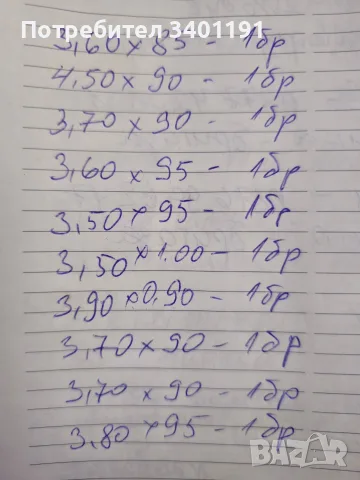 Потребител 3401191
3,60 x 85 - 1бр
4,50 x 90 - 1бр
3,70 x 90 - 1бр
3,60 x 95 - 1бр
3,50 x 95 - 1бр
3,50 x 1.00 - 1бр
3,90 x 0,90 - 1бр
3,70 x 90 - 1бр
3,70 x 90 - 1бр
3,80 x 95 - 1бр
BAZAR